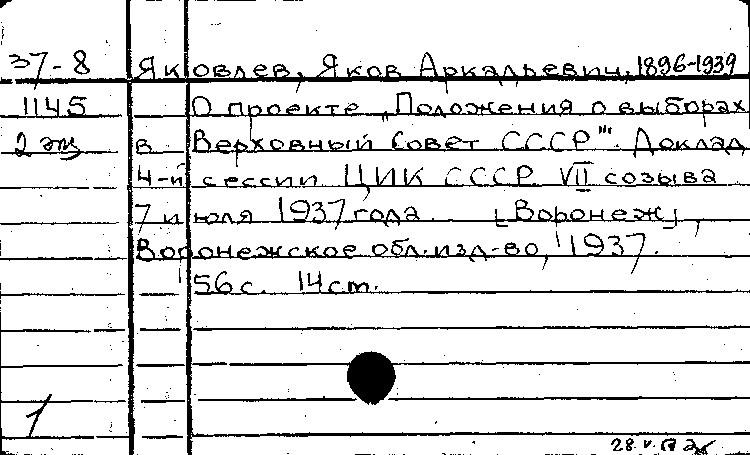 37-8 Яковлев, Яков Аркадьевич, 1896-1939
1145 О проекте „Положения о выборах
2 эк в Верховный Совет СССР"". Доклад
4-й сессии ЦИК СССР VII созыва
7 июля 1937 года. [Воронеж],
Воронежское обл. изд-во, 1937.
56 с. 14 ст.
1
28.V.